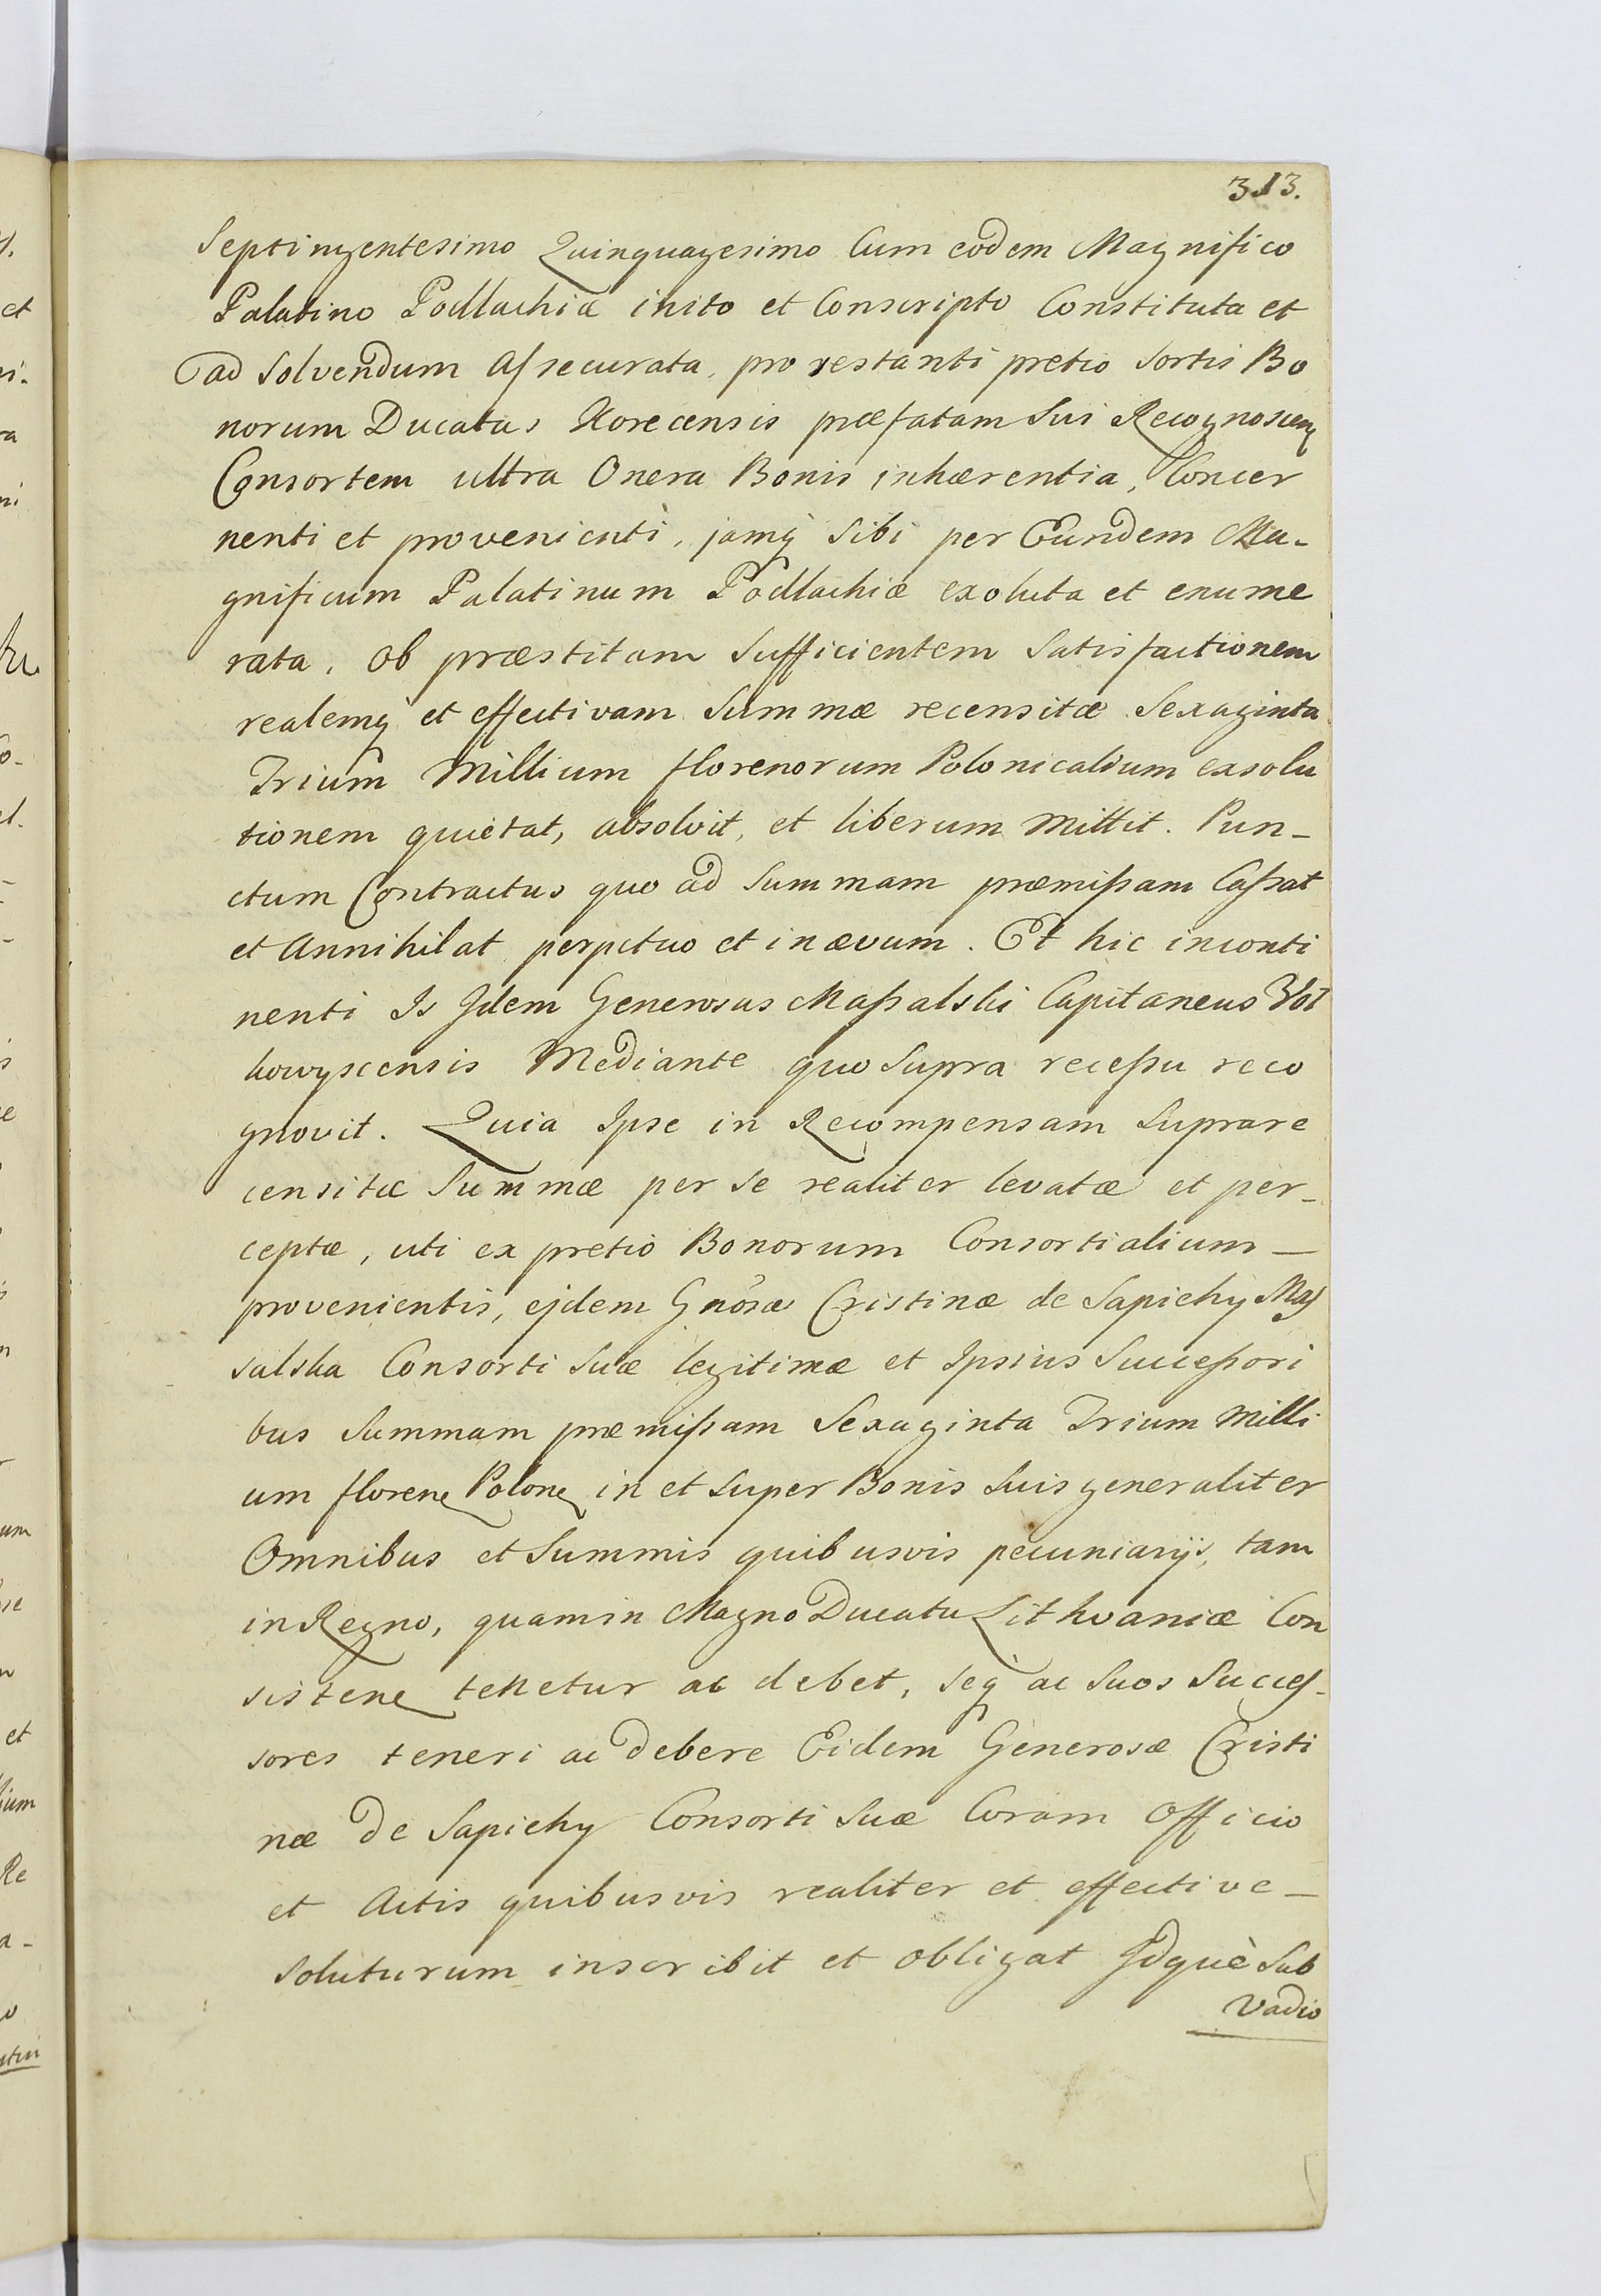 313.
Septingentesimo Quinquagesimo Cum eodem Magnifico
Palatino Podlachiæ inito et Conscripto Constituta et
ad Solvendum Assecurata, pro restanti pretio Sortis Bo
norum Ducatus Korecensis præfatam Sui Recognoscen
Consortem ultra Onera Bonis inhærentia, Concer
nenti et provenienti, jamq sibi per Eundem Ma-
gnificum Palatinum Podlachiæ exoluta et enume
rata, ob præstitam Sufficientem Satisfactionem
realemq et effectivam Summæ recensitæ Sexaginta
Trium Millium florenorum Polonicalium exsolu
tionem quietat, absolvit, et liberum mittit. Pun-
ctum Contractus quo ad Summam præmissam Cassat
et Annihilat perpetuo et in ævum. Et hic inconti
nenti Is Idem Generosus Massalski Capitaneus Woł
kowyscensis Mediante quo Supra recessu reco
gnovit. Quia Ipse in Recompensam Suprare
censitæ Summæ per se realiter levatæ et per-
ceptæ, uti ex pretio Bonorum Consortialium —
provenientis, ejdem Gnosæ Cristinæ de Sapiehy Mas
salska Consorti Suæ legitimæ et Ipsius Successori
bus Summam præmissam Sexaginta Trium Milli
um floren Polon in et Super Bonis Suis generaliter
Omnibus et Summis quibusvis pecuniarijs, tam
in Regno, quam in Magno Ducatu Lithvaniæ Con
sisten tenetur ac debet, seq ac Suos Succes-
sores teneri ac debere Eidem Generosæ Cristi
næ De Sapiehy Consorti Suæ Coram Officio
et Actis quibusvis realiter et effective —
Soluturum inscribit et obligat Idquè Sub
Vadio